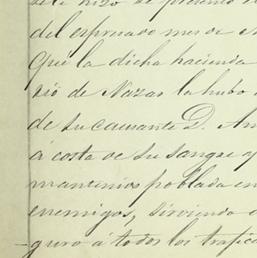 este hizo de presente
del espresado mes de
Que la dicha hacienda
rio de Nazas la hubo
de su causante D. An
á costa de su sangre y
mantenios poblada en
enemigos, sirviendo
guro á todos los trafic